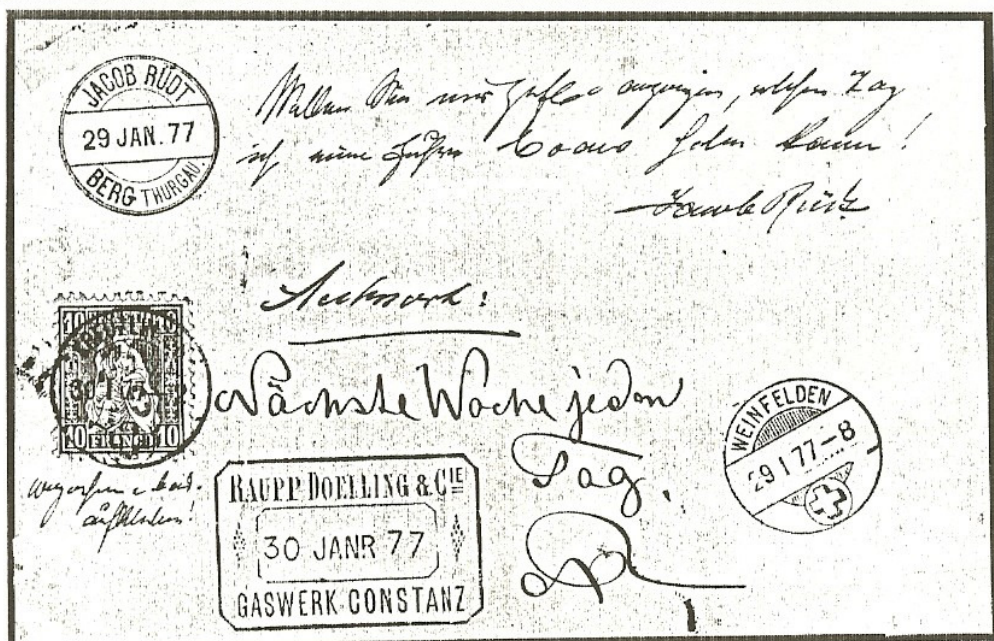 JACOB RÜDT
29 JAN. 77
BERG THURGAU.
Wollen Sie mir gefl. anzeigen, welchen Tag
ich eine Fuhre Coacs holen kann!
Jacob Rüdt
Antwort:
10 10
10 FRANCO 10
Nächste Woche jeden
Tag.
WEINFELDEN
29 I 77-8
RAUPP DOELLING & CIE
30 JANR 77
GASWERK CONSTANZ